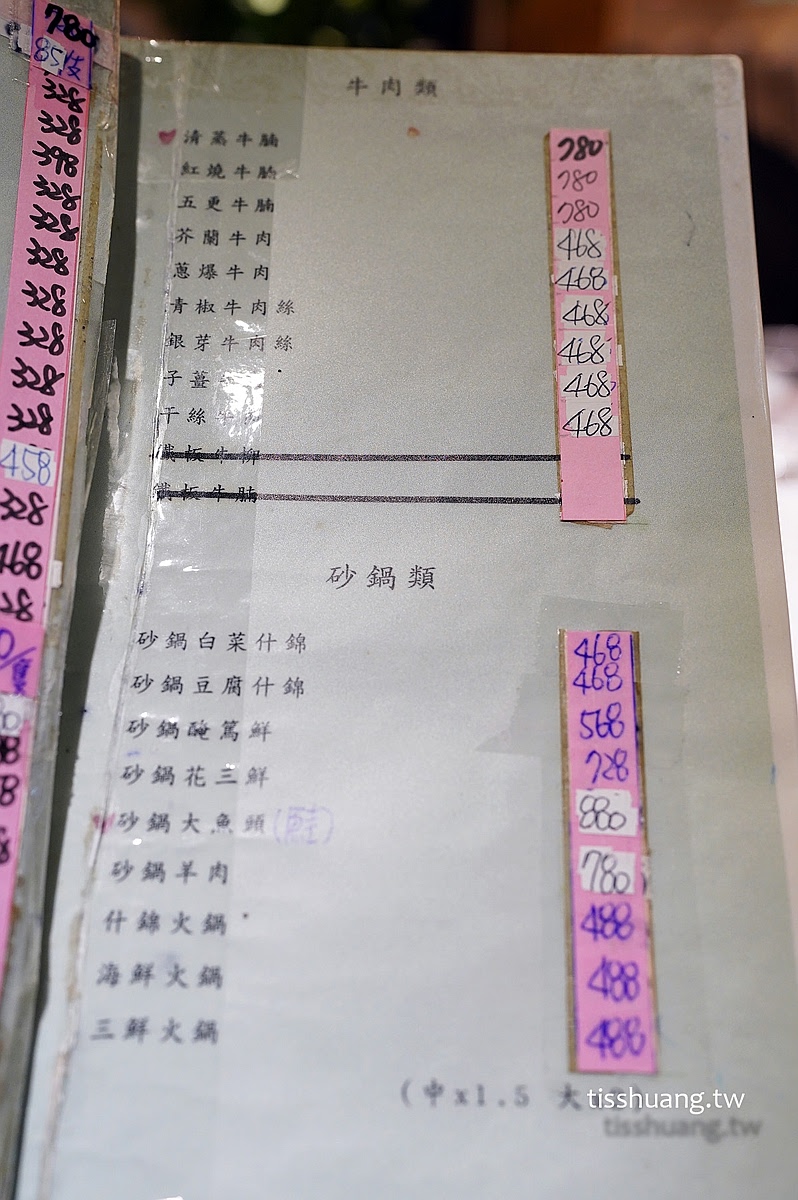 780
85/支
328
328
398
328
328
328
328
328
328
328
458
328
468
牛肉類
清蒸牛腩 780
紅燒牛腩 780
五更牛腩 780
芥蘭牛肉 468
蔥爆牛肉 468
青椒牛肉絲 468
銀芽牛肉絲 468
子薑 468
干絲牛肉 468
鐵板牛柳
鐵板牛腩
砂鍋類
砂鍋白菜什錦 468
砂鍋豆腐什錦 468
砂鍋醃篤鮮 568
砂鍋花三鮮 728
砂鍋大魚頭(鮭) 880
砂鍋羊肉 780
什錦火鍋 488
海鮮火鍋 488
三鮮火鍋 488
(中x1.5 大
tisshuang.tw
tisshuang.tw